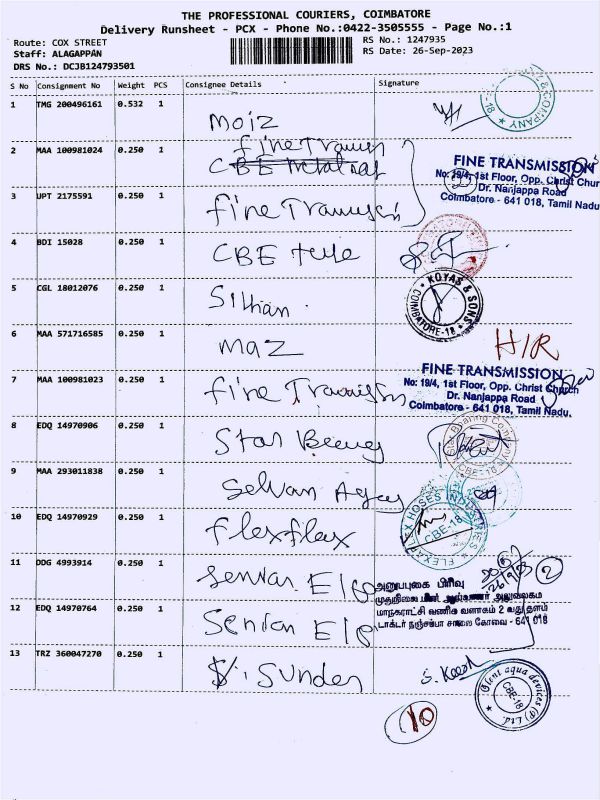 THE PROFESSIONAL COURIERS, COIMBATORE
Delivery Runsheet - PCX - Phone No.:0422-3505555 - Page No.:1
Route: COX STREET
RS No.: 1247935
Staff: ALAGAPPAN
RS Date: 26-Sep-2023
DRS No.: DCJB124793501
S No Consignment No Weight PCS Consignee Details Signature
1 TMG 200496161 0.532 1
Moiz
& COMPANY
2 MAA 100981024 0.250 1
Fine
CBE
FINE TRANSMISSION
No: 19/4, 1st Floor, Opp. Christ Chur
Dr. Nanjappa Road
Coimbatore - 641 018, Tamil Nadu
3 UPT 2175591 0.250 1
Fine
4 BDI 15028 0.250 1
CBE
5 CGL 18012076 0.250 1
KOYAS & SONS
COIMBATORE-18
6 MAA 571716585 0.250 1
maz
H/R
7 MAA 100981023 0.250 1
Fine
FINE TRANSMISSION
No: 19/4, 1st Floor, Opp. Christ Church
Dr. Nanjappa Road
Coimbatore - 641 018, Tamil Nadu.
8 EDQ 14970906 0.250 1
Star
Bearing
CBE-18
9 MAA 293011838 0.250 1
Selvan
10 EDQ 14970929 0.250 1
Flexflex
FLEXAFLEX HOSES INDUSTRIES
CBE-18
11 DDG 4993914 0.250 1
2
அனுப்புகை பிரிவு
12 EDQ 14970764 0.250 1
மாநகராட்சி வணிக வளாகம் 2 வது தளம்
டாக்டர் நஞ்சப்பா சாலை கோவை - 641 018
13 TRZ 360047270 0.250 1
Sunder
Glent aqua devices (P) Ltd.
CBE-18
10